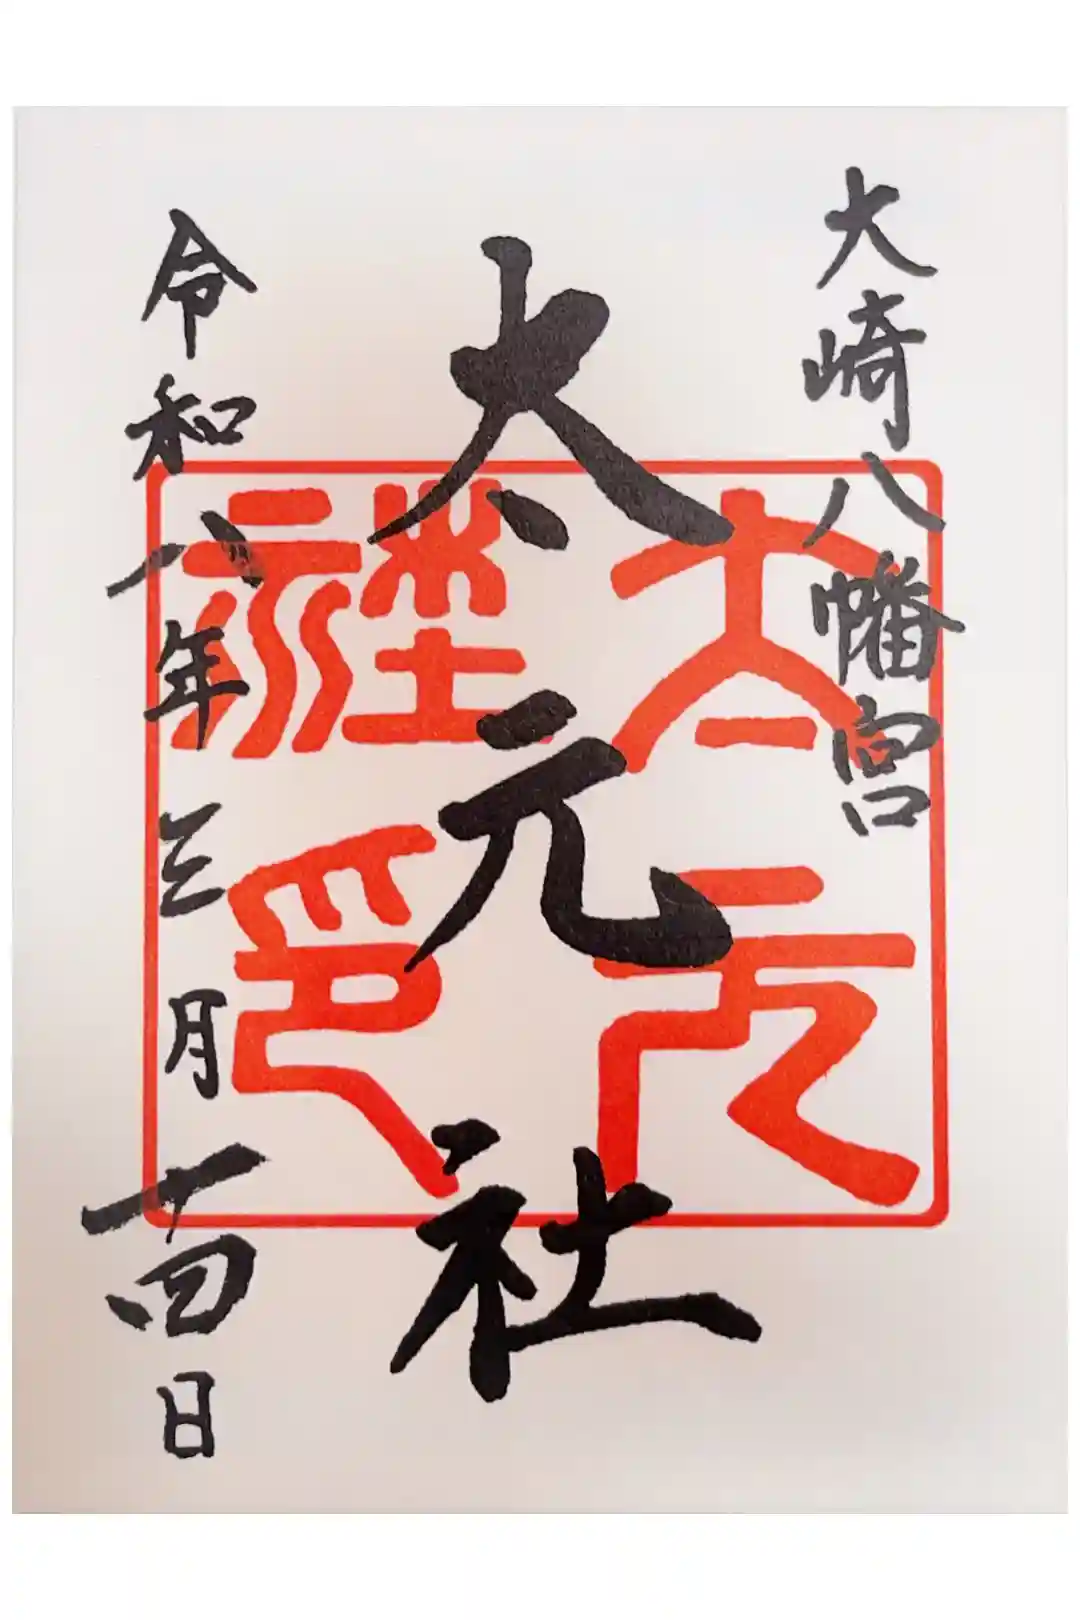 大崎八幡宮
太元社
太元社印
令和八年三月十四日